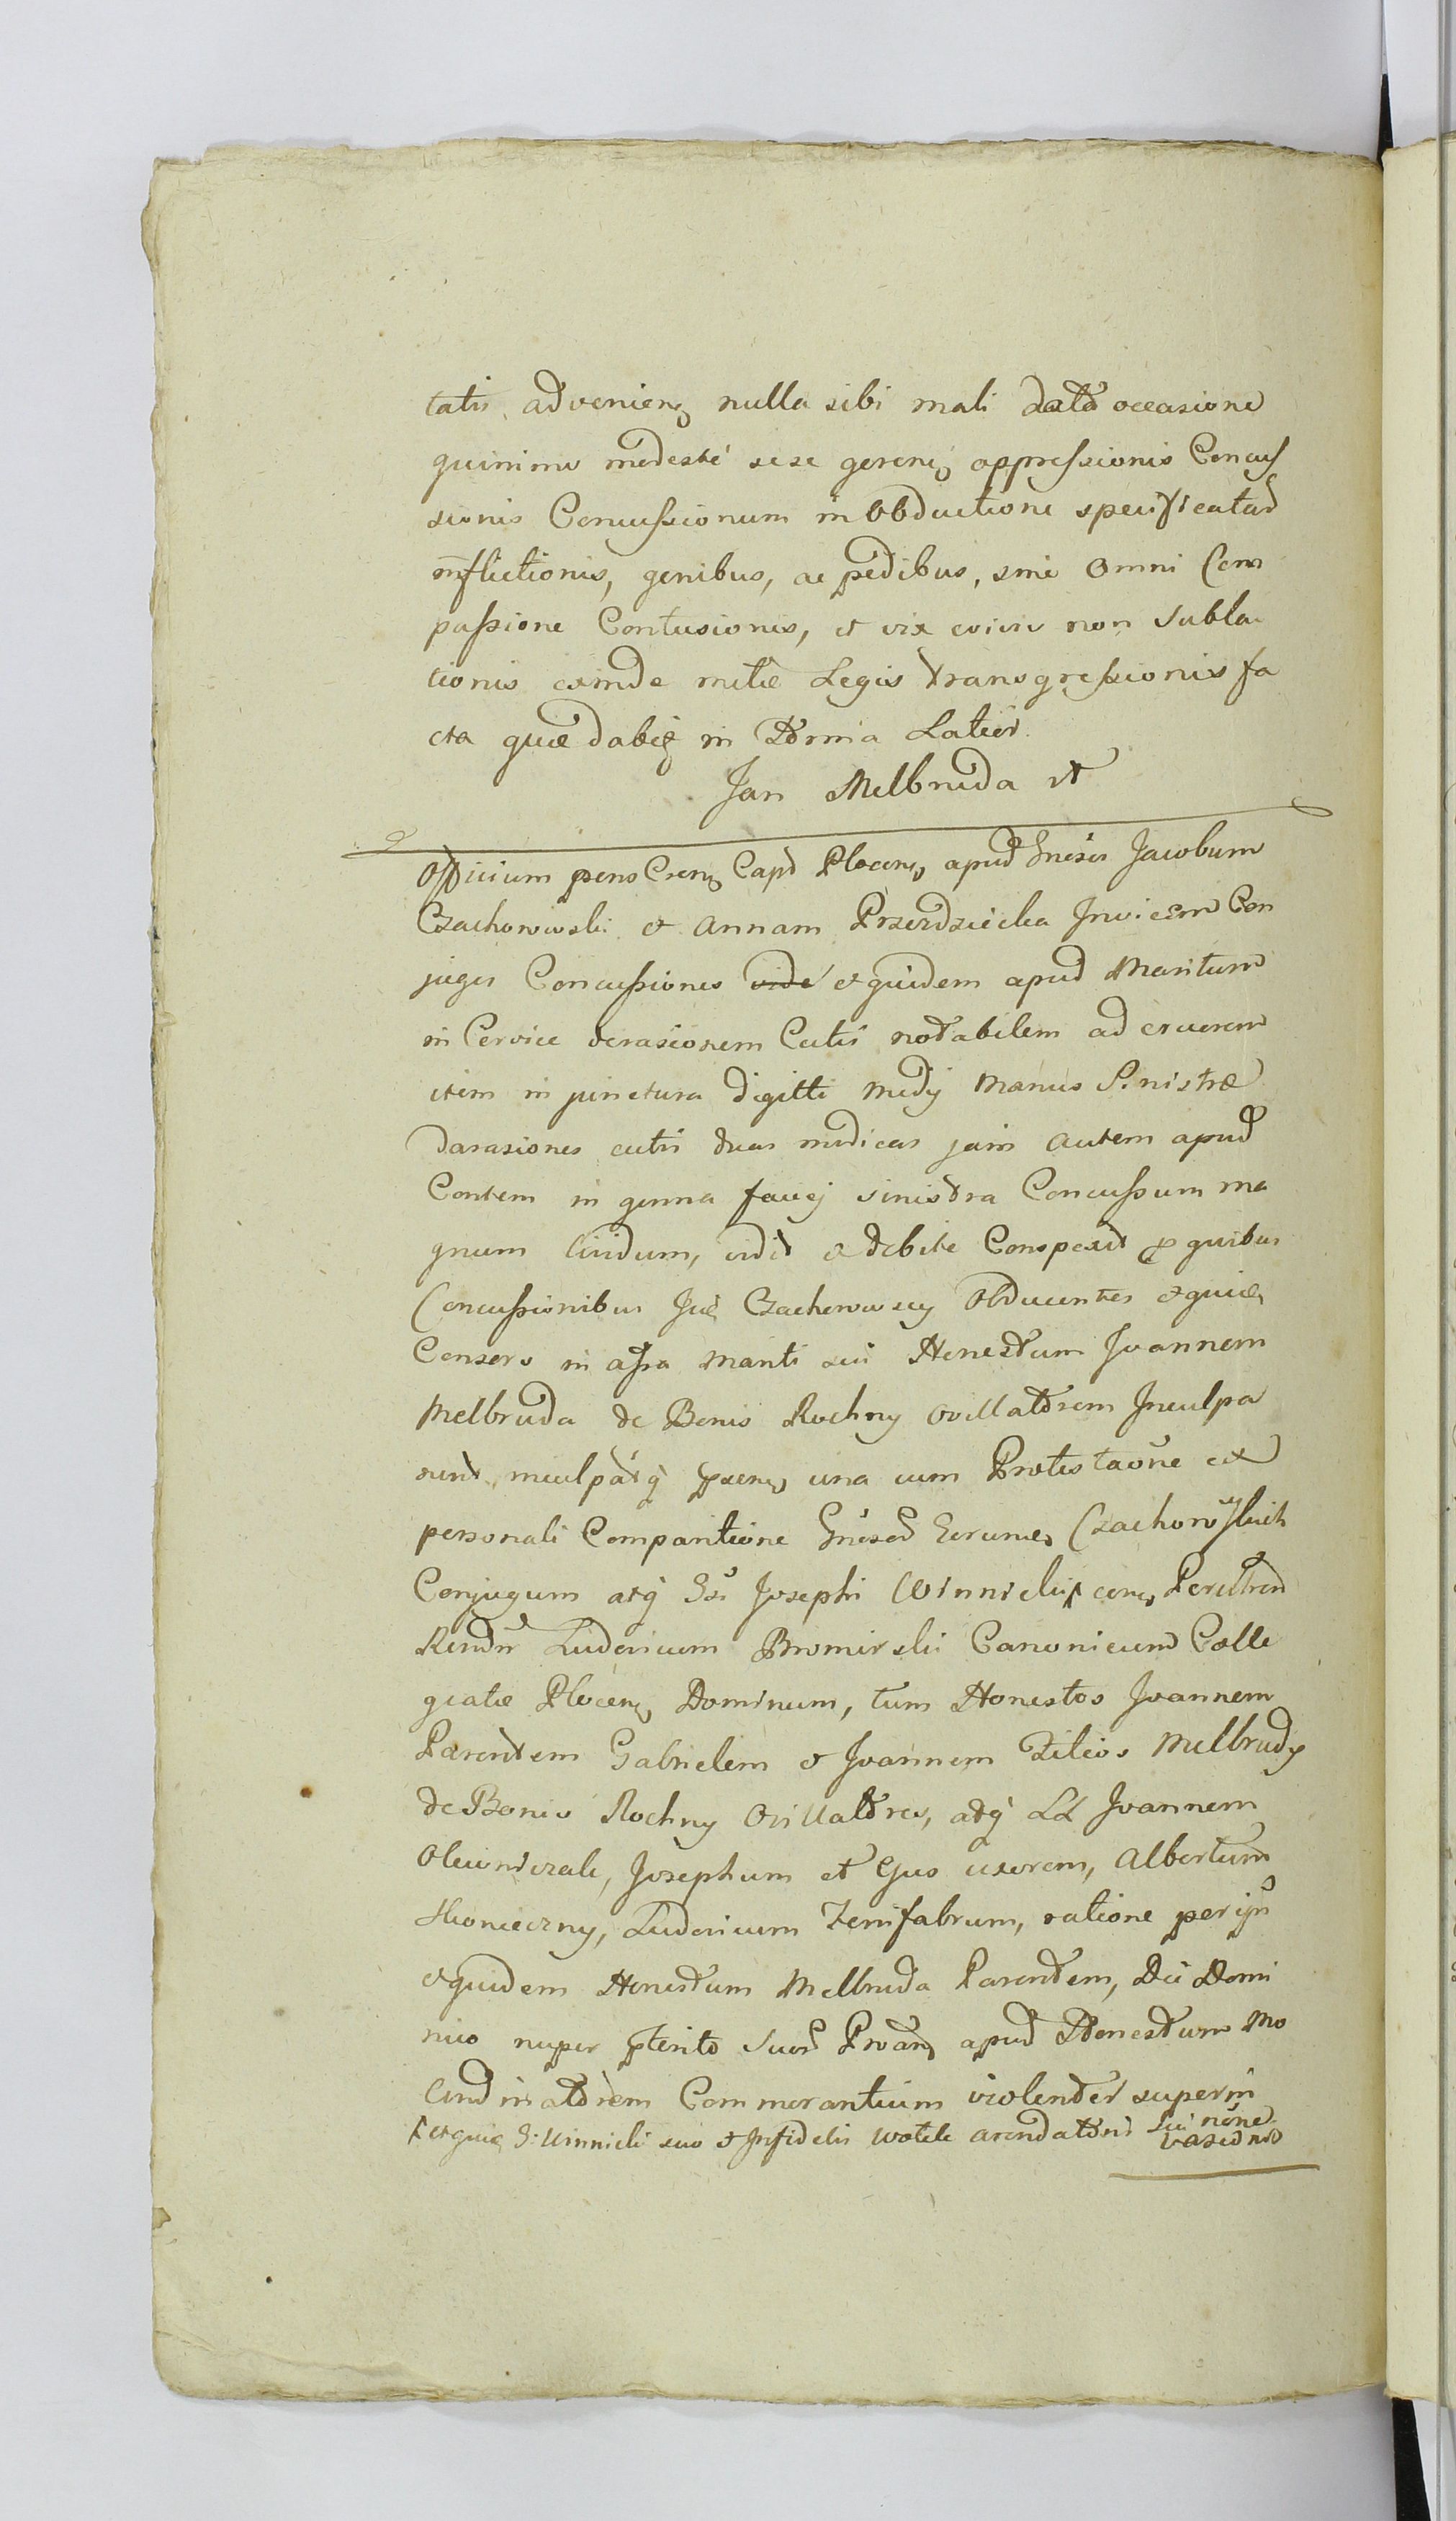 tatis advenien nulla sibi mali data occasione
quinimo modesté sese geren oppressionis Concus
sionis Concussionum in obductione specificatar
inflictionis, genibus, ac pedibus, sine omni Com
passione Contusionis, et vix e vivis non subla
tionis exinde mitiæ Legis transgressionis fa
cta quæ in Latius
Jan Melbruda
Officium pens Capt Plocen apud Gnesos Jacobum
Czachorowski et Annam Przerdziecka Invicem Con
juges Concussiones vide et quidem apud Maritum
in Cervice derasionem Cutis notabilem ad cruorem
item in junctura digitti medij manus Sinistræ
darasiones cutis duas modicas jam autem apud
Contem in genna faucj sinistra Concussum ma
gnum lividum, vidit et debite Conspexit pro quibus
Concussionibus Czachorowscy Obducentes et quidem
Consors in assa mariti sui Honestum Joannem
Melbruda de Bonis Rochny ovillatorem Inculpa
runt inculpatq una cum Protestaone ex
personali Comparitione Gnesor Czachorowskich
Conjugum atq Gsi Josephi Winnicki
Rendm Ludovicum Bromirski Canonicum Colle
giatæ Plocen Dominum, tum Honestos Joannem
Parentem Gabrielem et Joannem Filios Melbrudy
de Bonis Rochny Ovillatores, atq LL Joannem
Oleiniczak, Josephum et Ejus uxorem, Albertum
Skonieczny, Ludovicum Ferrifabrum, ratione per ijs
et quidem Honestum Melbruda Parentem, Die Domi
nico nuper pterito apud Honestum Mo
lendinatorem Commorantium violenter superin
et quia G. Winnicki suo et Infidelis arendatoris sui nõne
vasionis